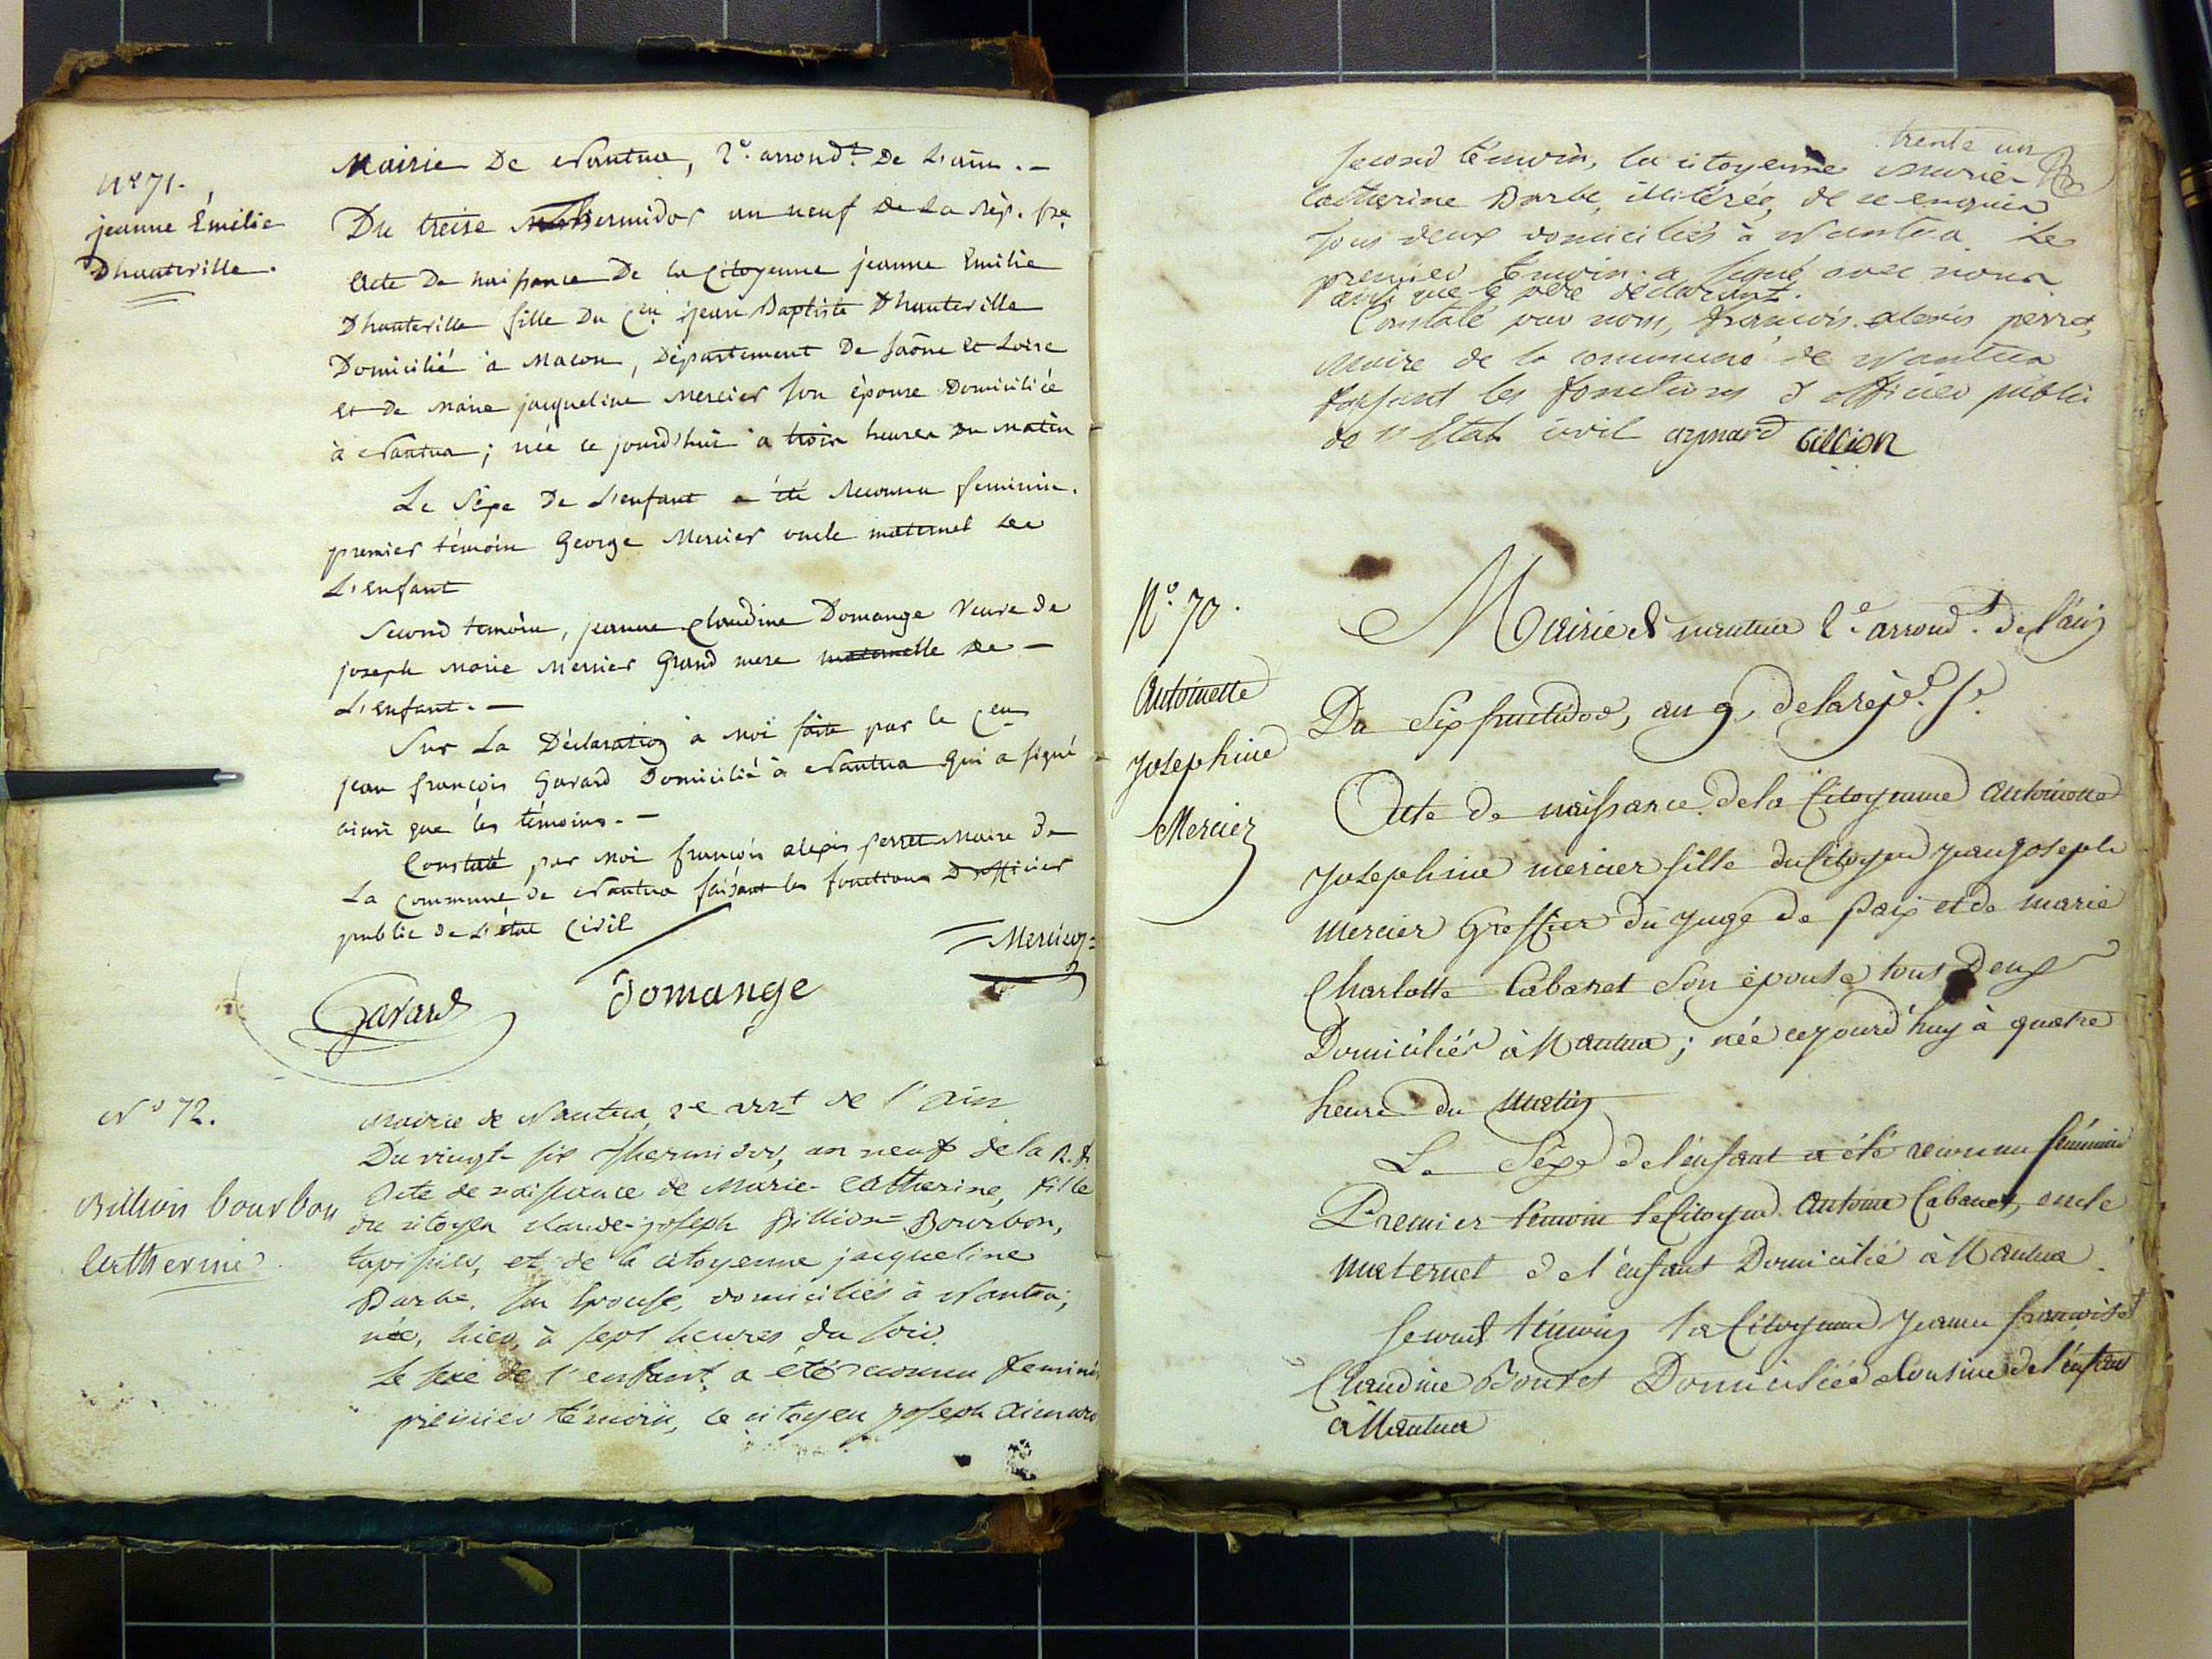 N° 71.
jeanne Émilie
Dhauteville.
Mairie De Nantua, 2e. arrondt. De L'ain. -
Du treise thermidor an neuf de La Rép. fse
Acte De naissance De la Citoyenne jeanne Emilie
Dhauteville fille Du Cen jean Baptiste Dhauteville
Domicilié à Macon, Département De Saône et Loire
et de Marie jacqueline Mercier Son épouse Domiciliée
à Nantua; née ce jourd'hui a trois heures du matin
Le Sexe De L'enfant a été Reconnu feminin.
premier témoin George Mercier oncle maternel de
L'enfant
Second temoin, jeanne Claudine Domange veuve de
joseph Marie Mercier Grand mere maternelle de -
L'enfant. -
Sur La Déclaration à moi faite par le Cen
jean françois Gavard Domicilié à Nantua qui a signé
ainsi que les témoins. -
Constaté par moi françois alexis perret Maire de
La Commune de Nantua faisant les fonctions D'officier
public de L'état Civil
Mercier
Gavard
Domange
N° 72.
Billion bourbon
Catherine
Mairie de Nantua, 2e arrt de l'ain
Du vingt-six thermidor, an neuf de la R. f.
Acte de naissance de Marie-Catherine, fille
du citoyen claude-joseph Billion-Bourbon,
tapissier, et de la citoyenne jacqueline
Barbe, son Epouse, domiciliés à Nantua;
née, hier, à sept heures du soir.
Le sexe de l'enfant a été reconnu feminin
premier témoin, le citoyen joseph aimard
trente un
second témoin, la citoyenne Marie-
Catherine Barbe, illitérée, de ce enquise
tous deux domiciliés à Nantua. Le
premier temoin a signé avec nous
ainsi que le père déclarant.
Constaté par nous, françois-alexis perret,
Maire de la commune de Nantua
faisant les fonctions d'officier public
de l'Etat civil aymard billion
N°. 70.
Antoinette
Josephine
Mercier
Mairie de nantua 2e. arrondt. de l'ain
Du Six fructidor, an 9, de la rép. f.
Acte de naissance de la Citoyenne Antoinette
Josephine mercier fille du Citoyen jean joseph
mercier Greffier du juge de Paix et de marie
Charlotte Cabanet son épouse tous Deux
Domiciliés à Nantua; née cejourd'huy à quatre
heure du matin
Le Sexe de l'enfant a été reconnu féminin
Premier témoin le Citoyen Antoine Cabanet, oncle
maternel de l'enfant Domicilié à Nantua.
Second témoin la Citoyenne jeanne françoise
Claudine Domiciliée Cousine de l'enfant
à Nantua